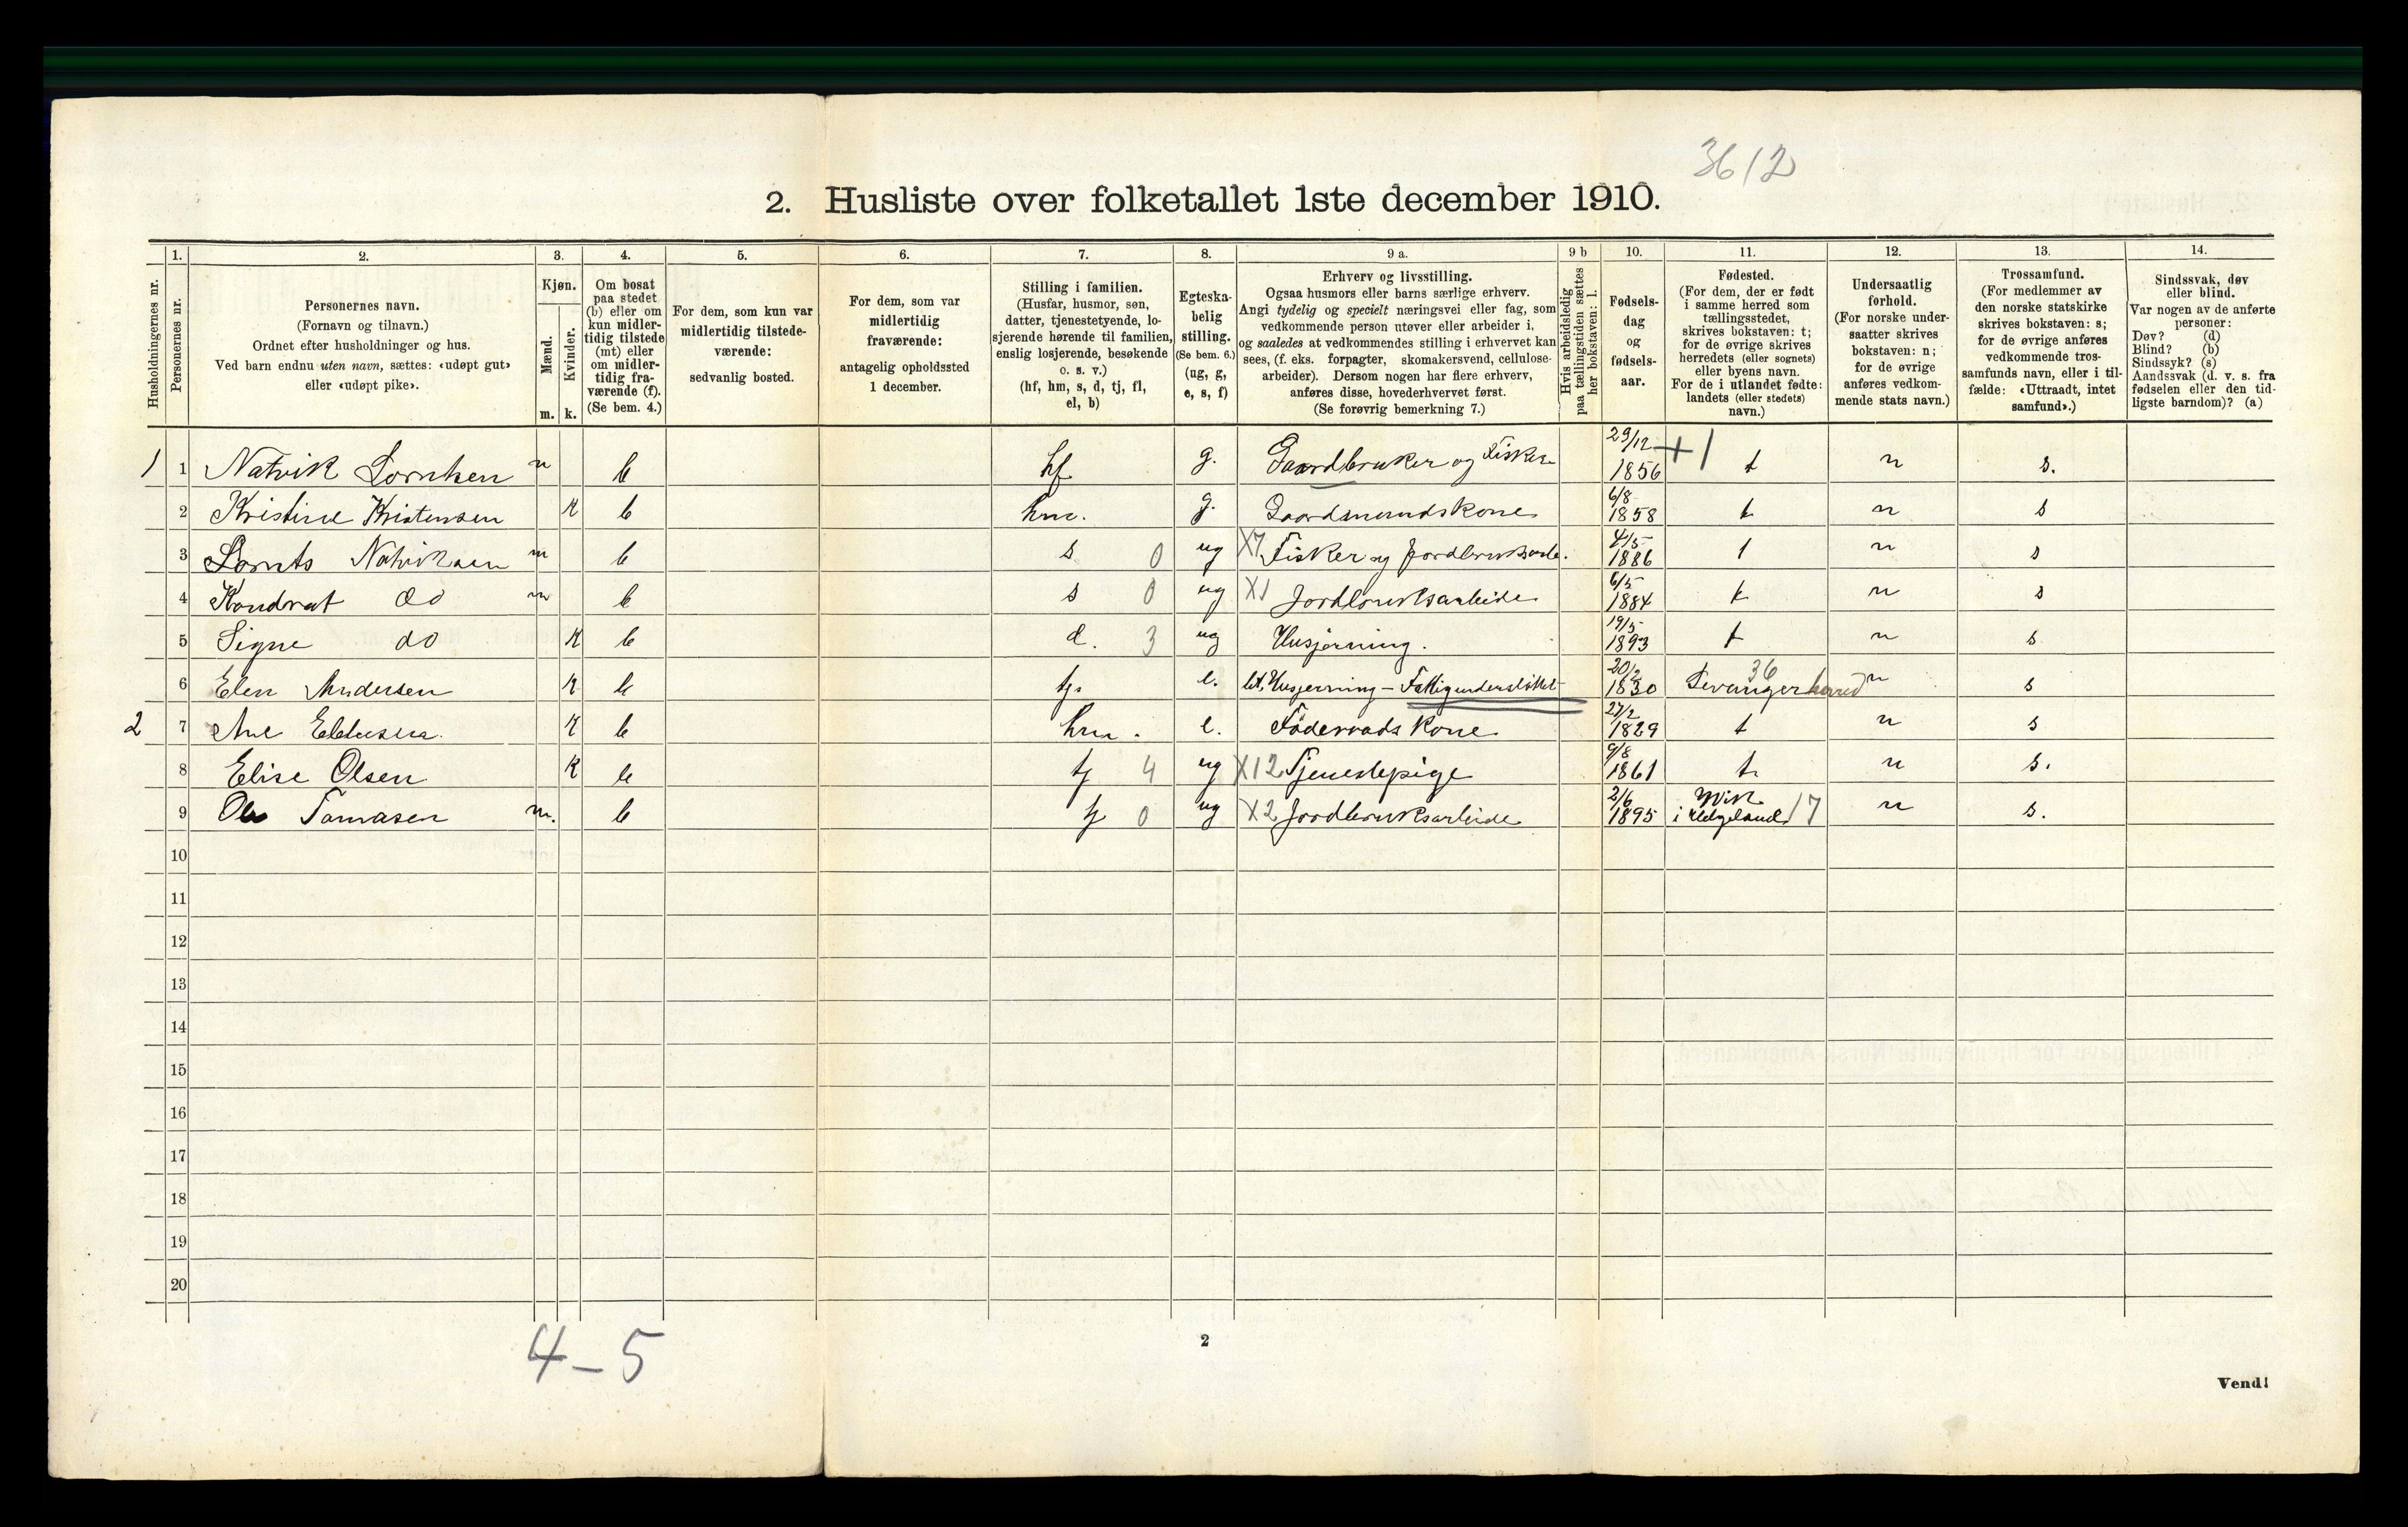 3612
2. Husliste over folketallet 1ste december 1910.
Husholdningernes nr.
1. Personernes nr.
2. Personernes navn.
(Fornavn og tilnavn.)
Ordnet efter husholdninger og hus.
Ved barn endnu uten navn, sættes: «udøpt gut»
eller «udøpt pike».
3. Kjøn.
Mænd. m.
Kvinder. k.
4. Om bosat
paa stedet
(b) eller om
kun midler-
tidig tilstede
(mt) eller
om midler-
tidig fra-
værende (f).
(Se bem. 4.)
5. For dem, som kun var
midlertidig tilstede-
værende:
sedvanlig bosted.
6. For dem, som var
midlertidig
fraværende:
antagelig opholdssted
1 december.
7. Stilling i familien.
(Husfar, husmor, søn,
datter, tjenestetyende, lo-
sjerende hørende til familien,
enslig losjerende, besøkende
o. s. v.)
(hf, hm, s, d, tj, fl,
el, b)
8. Egteska-
belig
stilling.
(Se bem. 6.)
(ug, g,
e, s, f)
9 a. Erhverv og livsstilling.
Ogsaa husmors eller barns særlige erhverv.
Angi tydelig og specielt næringsvei eller fag, som
vedkommende person utøver eller arbeider i,
og saaledes at vedkommendes stilling i erhvervet kan
sees, (f. eks. forpagter, skomakersvend, cellulose-
arbeider). Dersom nogen har flere erhverv,
anføres disse, hovederhvervet først.
(Se forøvrig bemerkning 7.)
9 b Hvis arbeidsledig
paa tællingstiden sættes
her bokstaven: l.
10. Fødsels-
dag
og
fødsels-
aar.
11. Fødested.
(For dem, der er født
i samme herred som
tællingsstedet,
skrives bokstaven: t;
for de øvrige skrives
herredets (eller sognets)
eller byens navn.
For de i utlandet fødte:
landets (eller stedets)
navn.)
12. Undersaatlig
forhold.
(For norske under-
saatter skrives
bokstaven: n;
for de øvrige
anføres vedkom-
mende stats navn.)
13. Trossamfund.
(For medlemmer av
den norske statskirke
skrives bokstaven: s;
for de øvrige anføres
vedkommende tros-
samfunds navn, eller i til-
fælde: «Uttraadt, intet
samfund».)
14. Sindssvak, døv
eller blind.
Var nogen av de anførte
personer:
Døv? (d)
Blind? (b)
Sindssyk? (s)
Aandssvak (d. v. s. fra
fødselen eller den tid-
ligste barndom)? (a)
1 1 Natvik Lorntsen m b hf. g. Gaardbruker og Fisker 29/12 1856 +1 t n s.
2 Kristine Kristensen K b hm. g. Gaardmandskone 6/8 1858 t n s
3 Lornts Natviksen m b s 0 ug X7 Fisker og Jordbruksarb. 4/5 1886 t n s
4 Kondrat do m b s 0 ug X1 Jordbruksarbeide 6/5 1884 t n s
5 Signe do K b d. 3 ug Husjerning. 19/5 1893 t n s
6 Elen Andersen K b tj. e. Husjerning – Fattigunderstøttet 20/2 1830 36 Levanger herred n s
2 7 Ane K b hm. e. Föderaads kone 27/2 1829 t n s
8 Elise Olsen K b tj 4 ug X12 Tjenestepige 9/8 1861 t. n s.
9 Ole Tomasen m. b tj 0 ug X2 Jordbruksarbeide 2/6 1895 Wik i Helgeland 17 n s.
10
11
12
13
14
15
16
17
18
19
20
4 – 5
2
Vend!